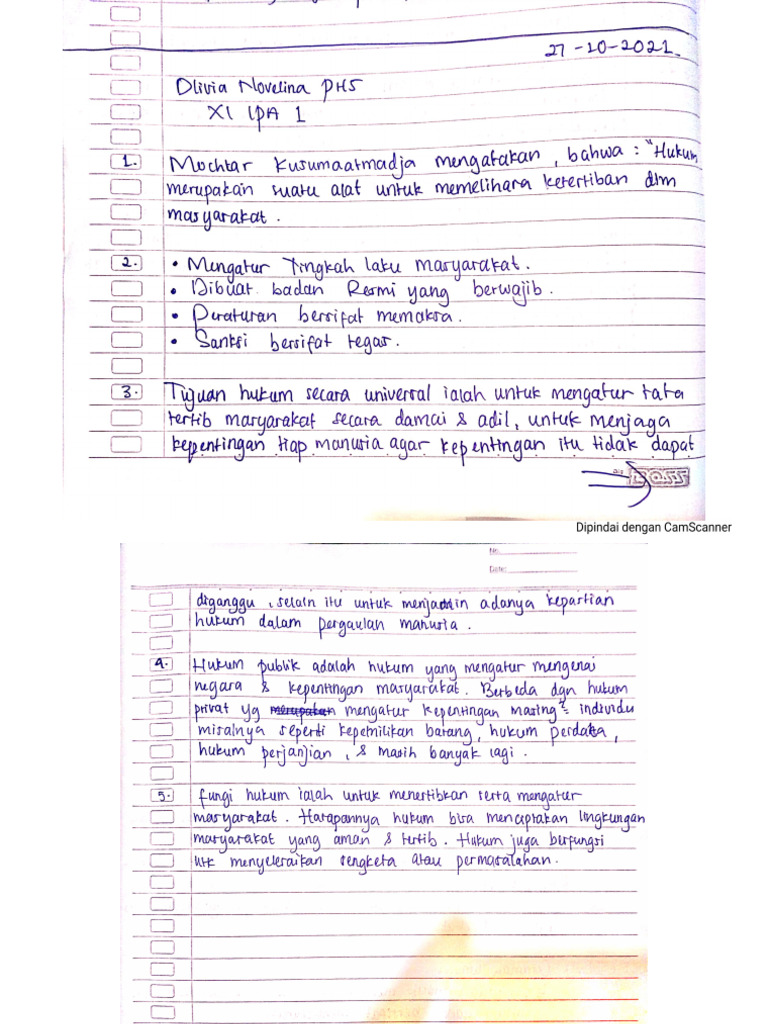 27-10-2021
Olivia Novelina PHS
XI IPA 1
1. Mochtar Kusumaatmadja mengatakan, bahwa : "Hukum
merupakan suatu alat untuk memelihara ketertiban dlm
masyarakat.
2. • Mengatur Tingkah laku masyarakat.
• Dibuat badan Resmi yang berwajib.
• Peraturan bersifat memaksa.
• Sanksi bersifat tegas.
3. Tujuan hukum secara universal ialah untuk mengatur tata
tertib masyarakat secara damai & adil, untuk menjaga
kepentingan tiap manusia agar kepentingan itu tidak dapat
BOSS
Dipindai dengan CamScanner
No.
Date:
diganggu, selain itu untuk menjamin adanya kepastian
hukum dalam pergaulan manusia.
4. Hukum publik adalah hukum yang mengatur mengenai
negara & kepentingan masyarakat. Berbeda dgn hukum
privat yg merupakan mengatur kepentingan masing² individu
misalnya seperti kepemilikan barang, hukum perdata,
hukum perjanjian, & masih banyak lagi.
5. fungi hukum ialah untuk menertibkan serta mengatur
masyarakat. Harapannya hukum bisa menciptakan lingkungan
masyarakat yang aman & tertib. Hukum juga berfungsi
utk menyelesaikan sengketa atau permasalahan.